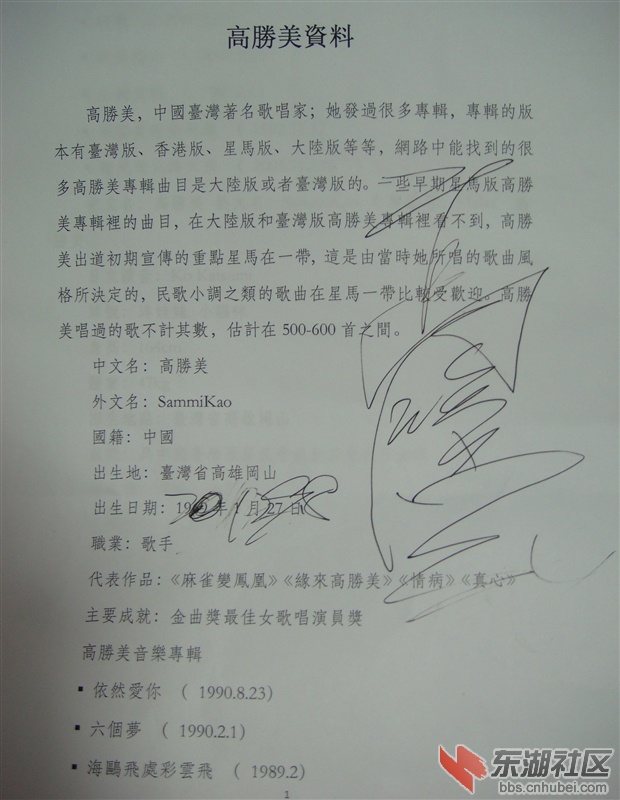 高勝美資料
高勝美，中國臺灣著名歌唱家；她發過很多專輯，專輯的版
本有臺灣版、香港版、星馬版、大陸版等等，網路中能找到的很
多高勝美專輯曲目是大陸版或者臺灣版的。一些早期星馬版高勝
美專輯裡的曲目，在大陸版和臺灣版高勝美專輯裡看不到，高勝
美出道初期宣傳的重點星馬在一帶，這是由當時她所唱的歌曲風
格所決定的，民歌小調之類的歌曲在星馬一帶比較受歡迎。高勝
美唱過的歌不計其數，估計在 500-600 首之間。
中文名：高勝美
外文名：SammiKao
國籍：中國
出生地：臺灣省高雄岡山
出生日期：年 1 月 27 日
職業：歌手
代表作品：《麻雀變鳳凰》《緣來高勝美》《情病》《真心》
主要成就：金曲獎最佳女歌唱演員獎
高勝美音樂專輯
▪ 依然愛你 （ 1990.8.23）
▪ 六個夢 （ 1990.2.1）
▪ 海鷗飛處彩雲飛 （ 1989.2）
1
东湖社区
bbs.cnhubei.com